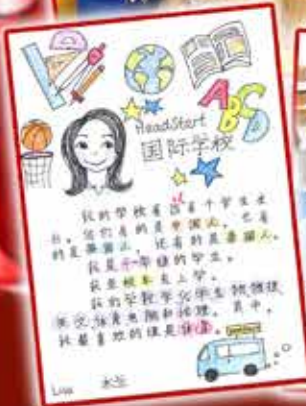 ABCD
HeadStart
国际学校
我的学校有四百个学生左
右。他们有的是中国人，也有
的是英国人，还有的是泰国人。
我是十一年级的学生。
我坐校车去上学。
我的学校学化学生物物理
英文体育电脑和地理。其中，
我最喜欢的课是体育。
Lisa